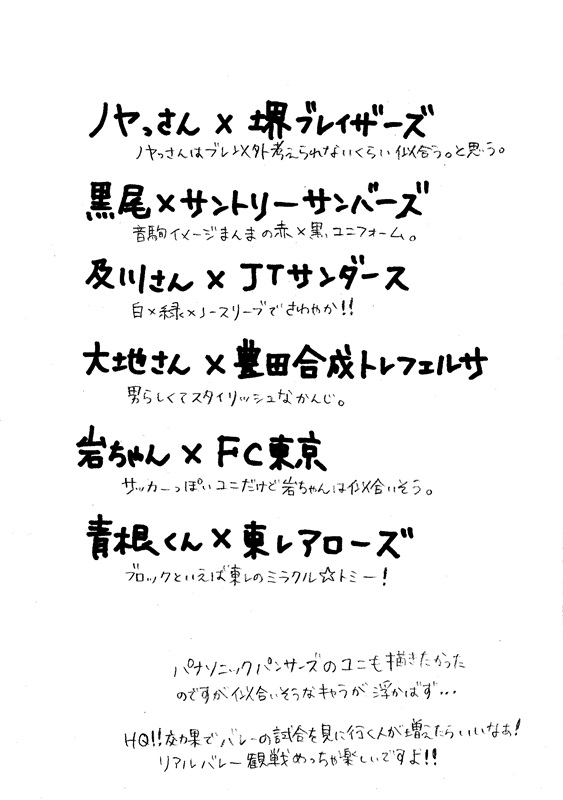 ノヤっさん × 堺ブレイザーズ
ノヤっさんはブレ以外考えられないくらい似合う。と思う。
黒尾×サントリーサンバーズ
音駒イメージまんまの赤×黒ユニフォーム。
及川さん × JTサンダース
白×緑×ノースリーブでさわやか!!
大地さん ×豊田合成トレフェルサ
男らしくてスタイリッシュなかんじ。
岩ちゃん × FC東京
サッカーっぽいユニだけど岩ちゃんは似合いそう。
青根くん×東レアローズ
ブロックといえば東レのミラクル☆トミー!
パナソニックパンサーズのユニも描きたかった
のですが似合いそうなキャラが浮かばず…
HQ!!効果でバレーの試合を見に行く人が増えたらいいなぁ!
リアルバレー観戦めっちゃ楽しいですよ!!